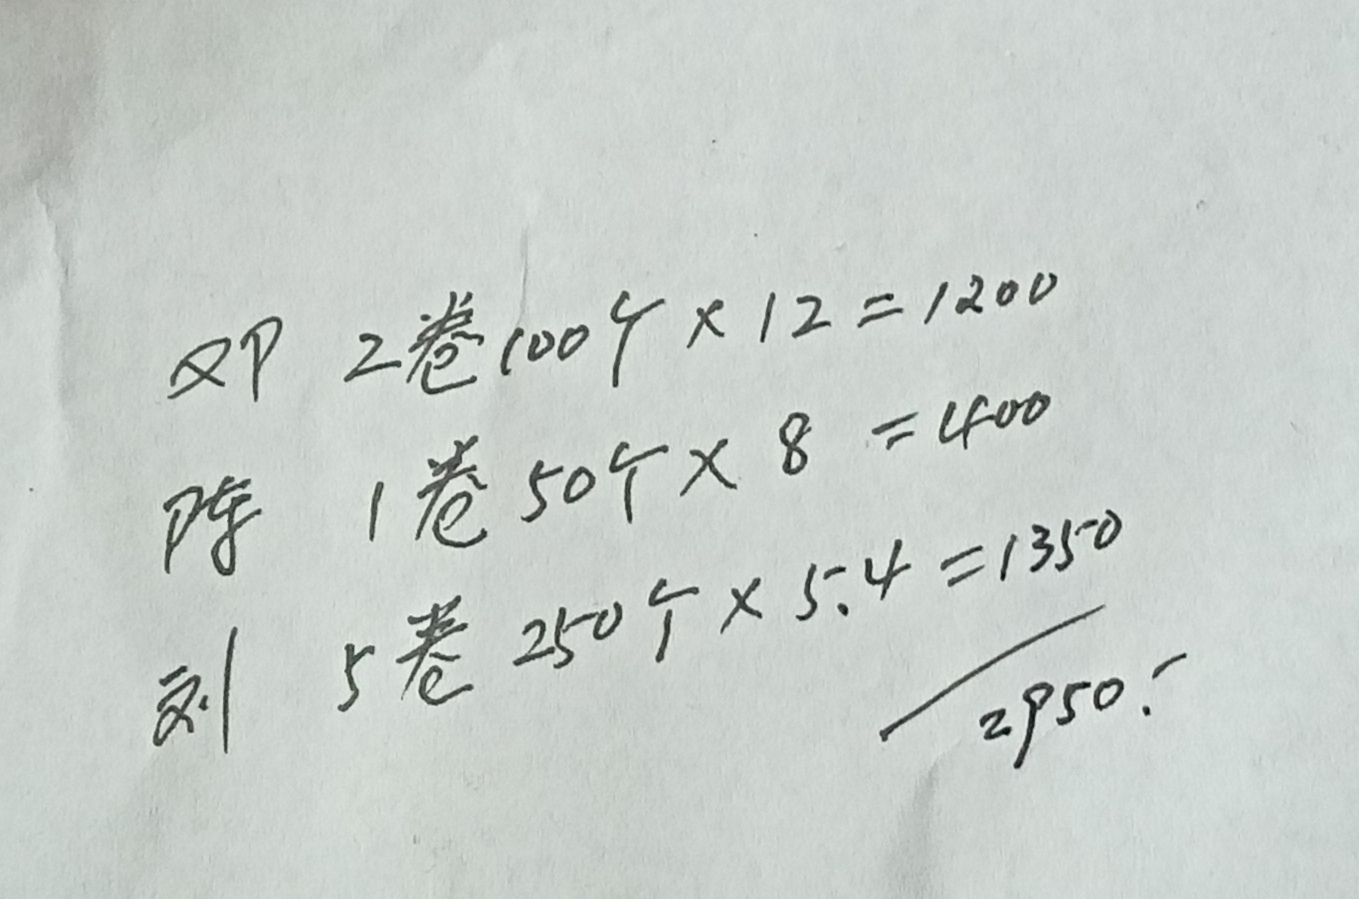 邓 2卷100个×12=1200
陈 1卷50个×8=400
刘 5卷250个×5.4=1350
2950.